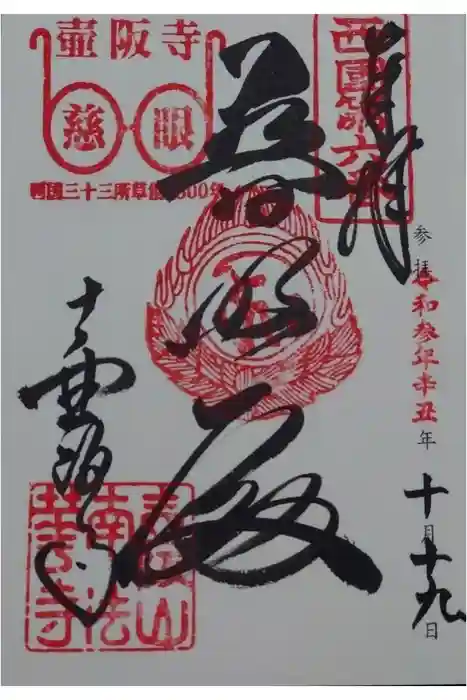 壺阪寺
慈眼
西国三十三所草創1300年
西國第六番
奉拝
参拝 令和参年辛丑年 十月十九日
普照殿
壷阪寺
壷阪山
南法
華寺